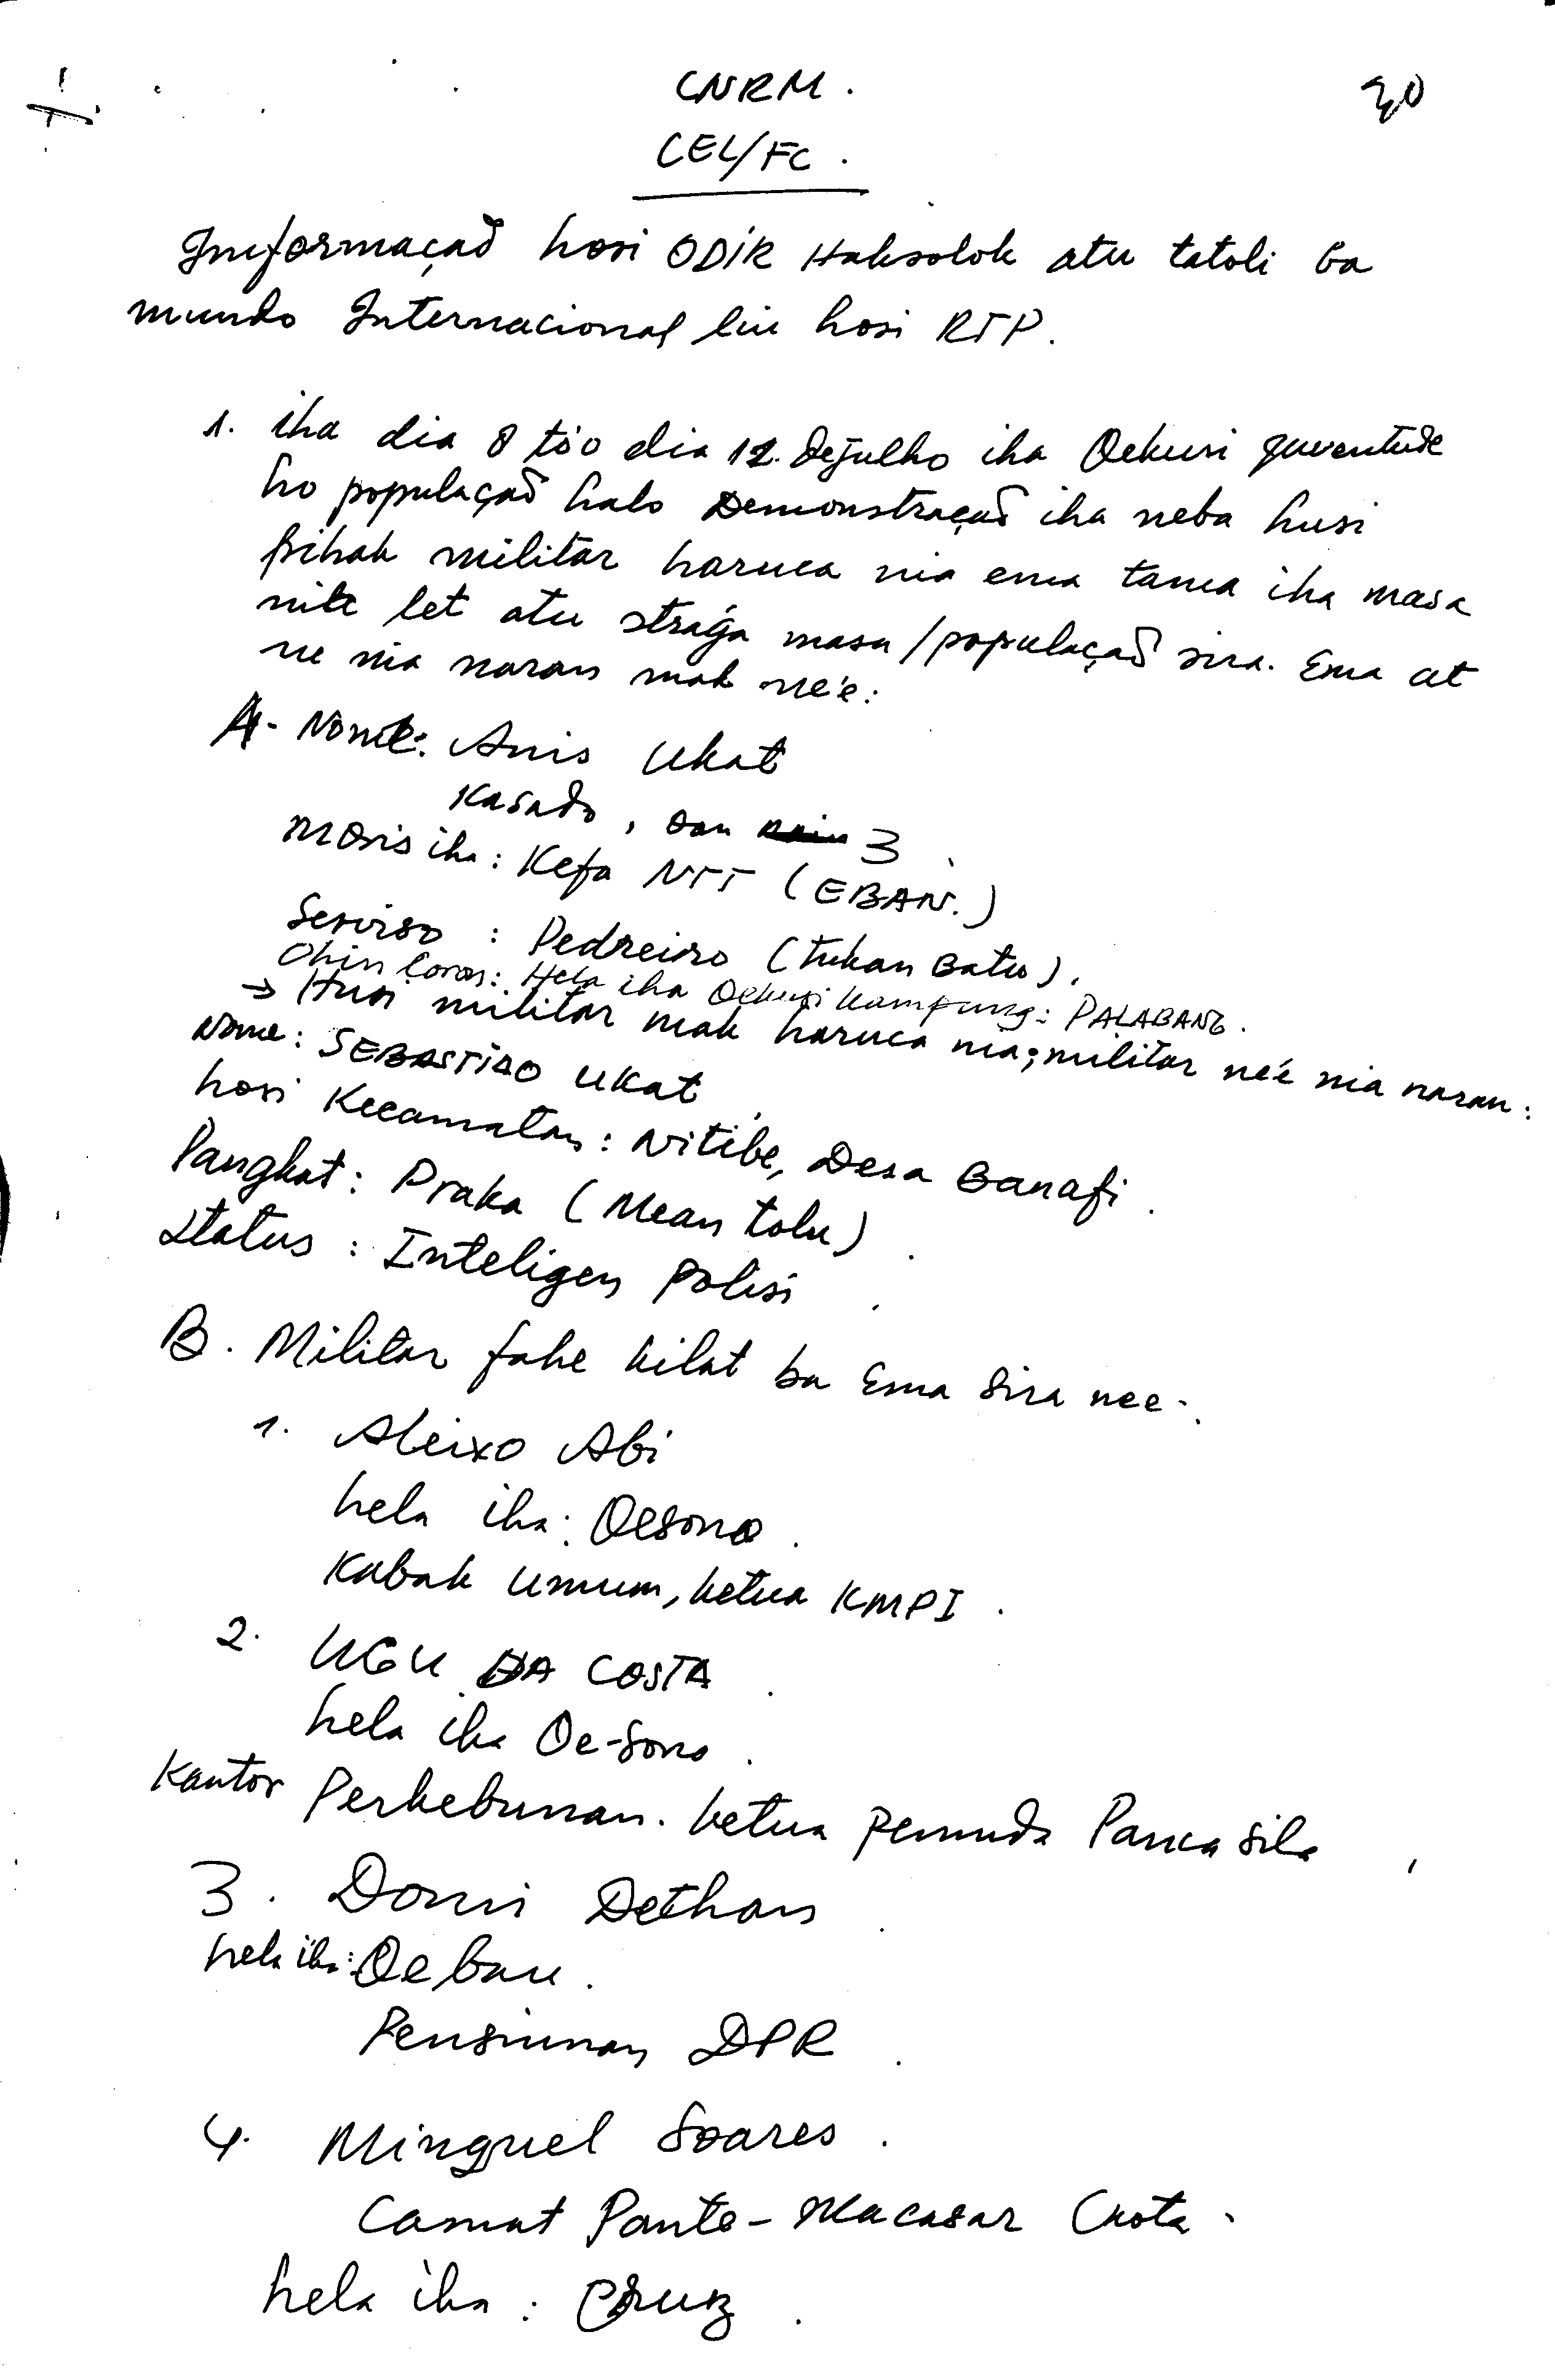 CNRM.
20
CEL/FC.
Informação hosi ODIR Haksolok atu tatoli ba
mundo Internacional liu hosi RTP.
1. iha dia 8 to'o dia 12. de julho iha Oekusi juventude
ho população halo Demonstração iha neba husi
pihak militar haruca nia ema tama iha masa
nite let atu straga masa/população sira. Ema at
ne nia naran mak ne'e:
A- Nome: Anis Ukat
Kasado, oan 3
Moris iha: Kefa NTT (EBAN.)
Serviso : Pedreiro (tukan Batu).
Ohin loron: Hela iha Oekusi kampung: PALABANG.
→ Husi militar mak haruca nia; militar ne'e nia naran:
Nome: SEBASTIAO UKat
hosi Kecamatan: Nitibe, Desa Banafi.
Pangkat: Praka (Mean tolu)
Status : Inteligen Polisi
B. Militar fahe kilat ba Ema sira nee-.
1. Aleixo Abi
hela iha: Oesono.
Kabak Umum, ketua KMPI.
2. UGU DA COSTA
hela iha Oe-Sono.
Kantor Perkebunan. ketua Pemuda Panca Sila
3. Domi Dethan
hela iha: Oebau.
Pensiunan DPR
4. Minguel Soares.
Camat Pante-Makasar Cota.
hela iha : Cruz